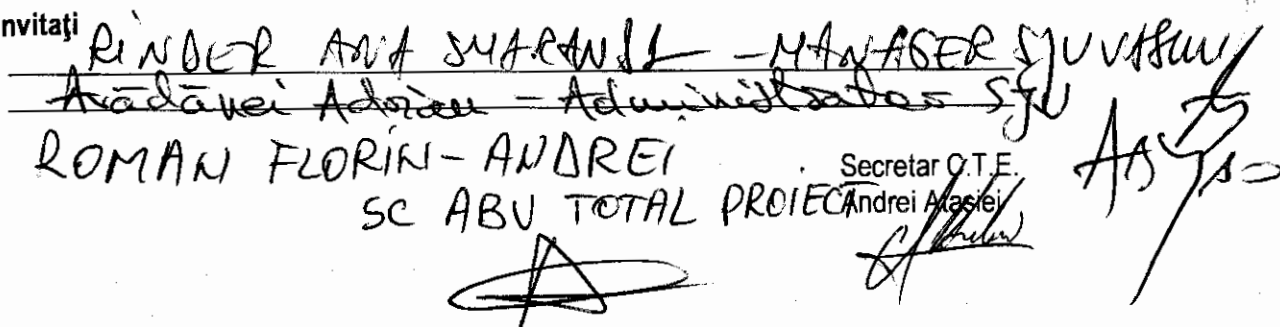 nvitaţi
RINDER ANA SMARANDA - MANAGER SJU VASLUI
Arădăvei Adrian - Administrator SJU
ROMAN FLORIN-ANDREI
SC ABV TOTAL PROIECT
Secretar C.T.E.
Andrei Atasiei